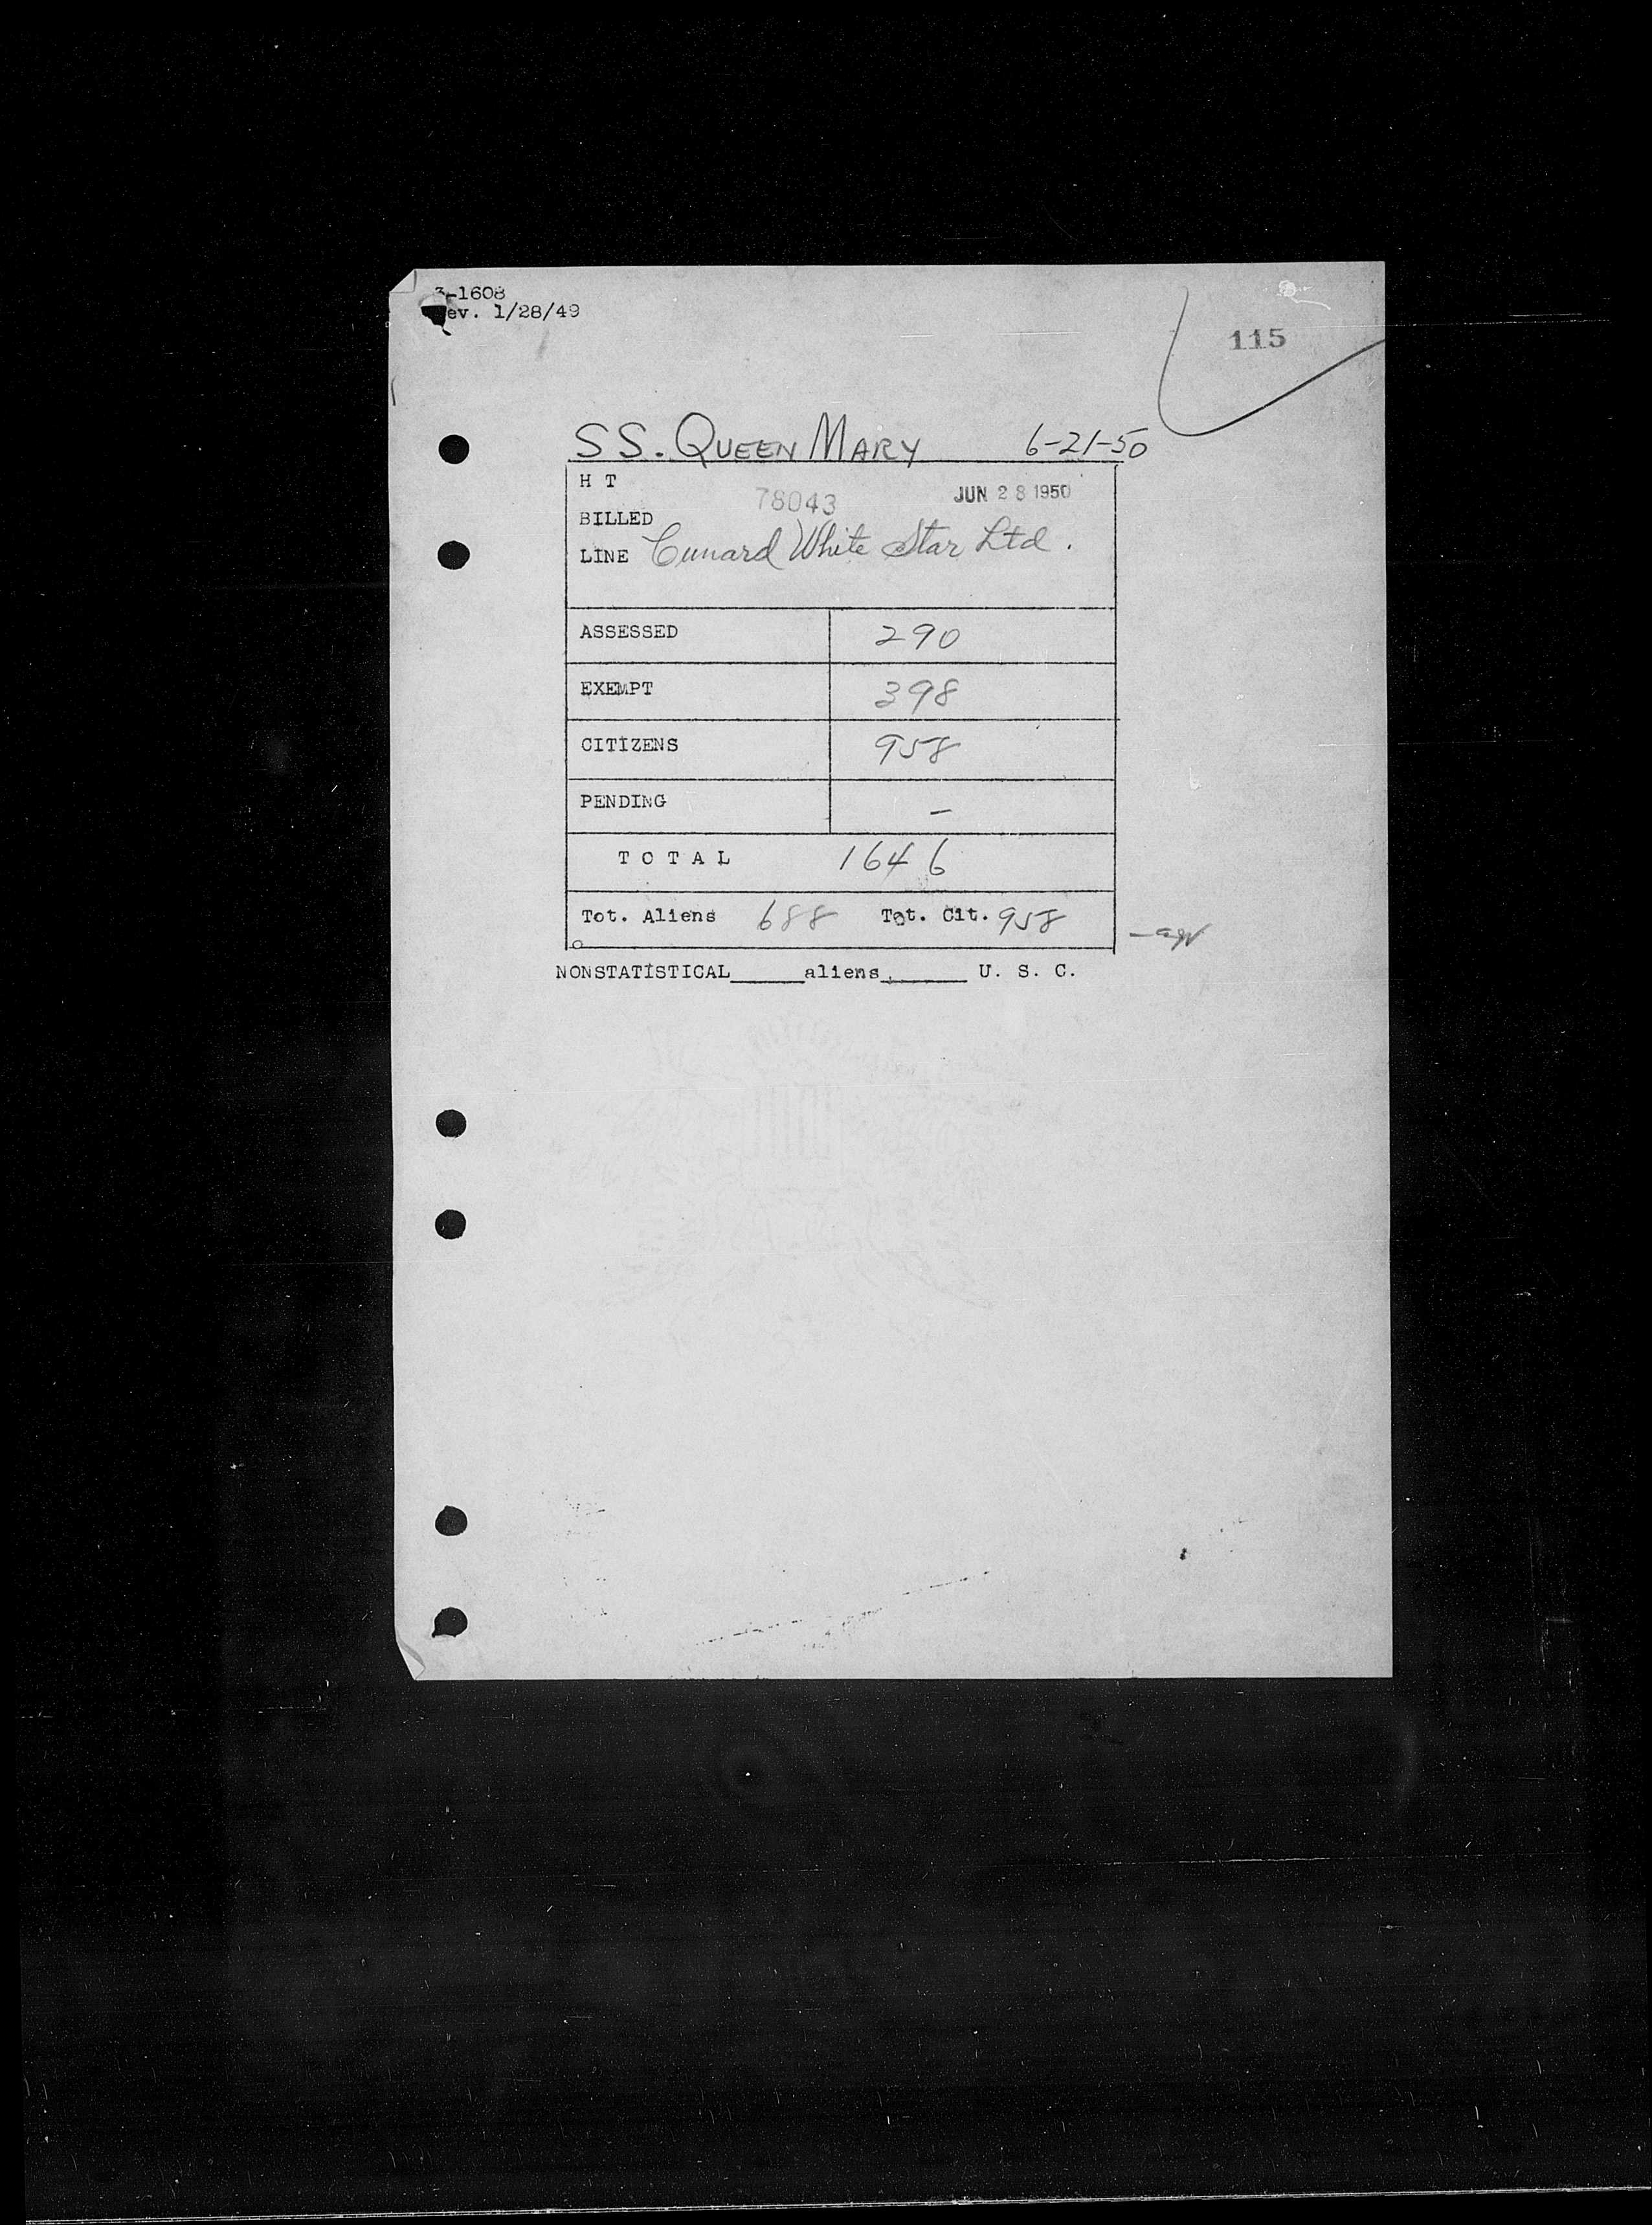 3-1608
ev. 1/28/49
115
SS. QUEEN MARY 6-21-50
H T
78043 JUN 28 1950
BILLED
LINE Cunard White Star Ltd.
ASSESSED 290
EXEMPT 398
CITIZENS 958
PENDING -
TOTAL 1646
Tot. Aliens 688 Tot. Cit. 958
NONSTATISTICAL_____aliens______ U. S. C.